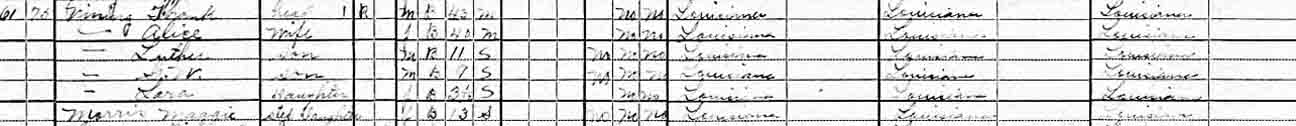 61 75 Vining Frank head 1 R m B 43 m no no Louisiana Louisiana Louisiana
— Alice wife f B 40 m no no Louisiana Louisiana Louisiana
— Luther son m B 11 S no no no Louisiana Louisiana Louisiana
— son m B 9 S no no no Louisiana Louisiana Louisiana
— daughter f B S no no Louisiana Louisiana Louisiana
Morris Maggie step daughter f B 13 S no no no Louisiana Louisiana Louisiana